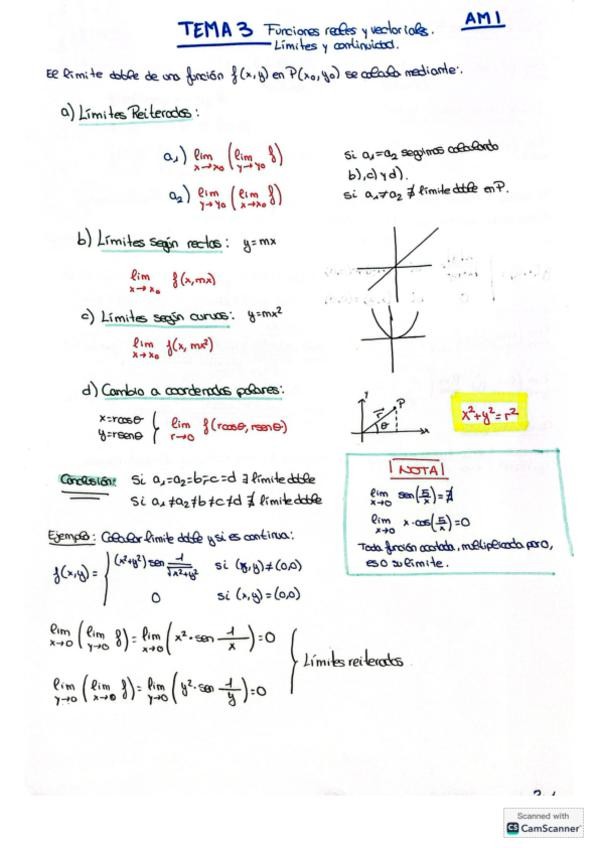 AM1
TEMA 3 Funciones reales y vectoriales.
Límites y continuidad.
El límite doble de una función f(x,y) en P(x₀,y₀) se calcula mediante:
a) Límites Reiterados:
a₁) lim x→x₀ (lim y→y₀ f)
a₂) lim y→y₀ (lim x→x₀ f)
si a₁=a₂ seguimos calculando
b), c) y d).
si a₁≠a₂ ∄ límite doble en P.
b) Límites según rectas: y=mx
lim x→x₀ f(x,mx)
c) Límites según curvas: y=mx²
lim x→x₀ f(x,mx²)
d) Cambio a coordenadas polares:
x=rcosθ
y=rsenθ
lim r→0 f(rcosθ, rsenθ)
y
r
P
θ
x
x²+y²=r²
Conclusión: si a₁=a₂=b=c=d ∃ límite doble
si a₁≠a₂≠b≠c≠d ∄ límite doble
NOTA
lim x→0 sen(5/x)=∄
lim x→0 x·cos(5/x)=0
Toda función acotada, multiplicada por 0,
es 0 su límite.
Ejemplo: Calcular límite doble y si es continua:
f(x,y)= { (x²+y²) sen 1/√x²+y² si (x,y)≠(0,0)
0 si (x,y)=(0,0)
lim x→0 (lim y→0 f) = lim x→0 (x²·sen 1/x)=0
lim y→0 (lim x→0 f) = lim y→0 (y²·sen 1/y)=0
Límites reiterados
Scanned with
CS CamScanner